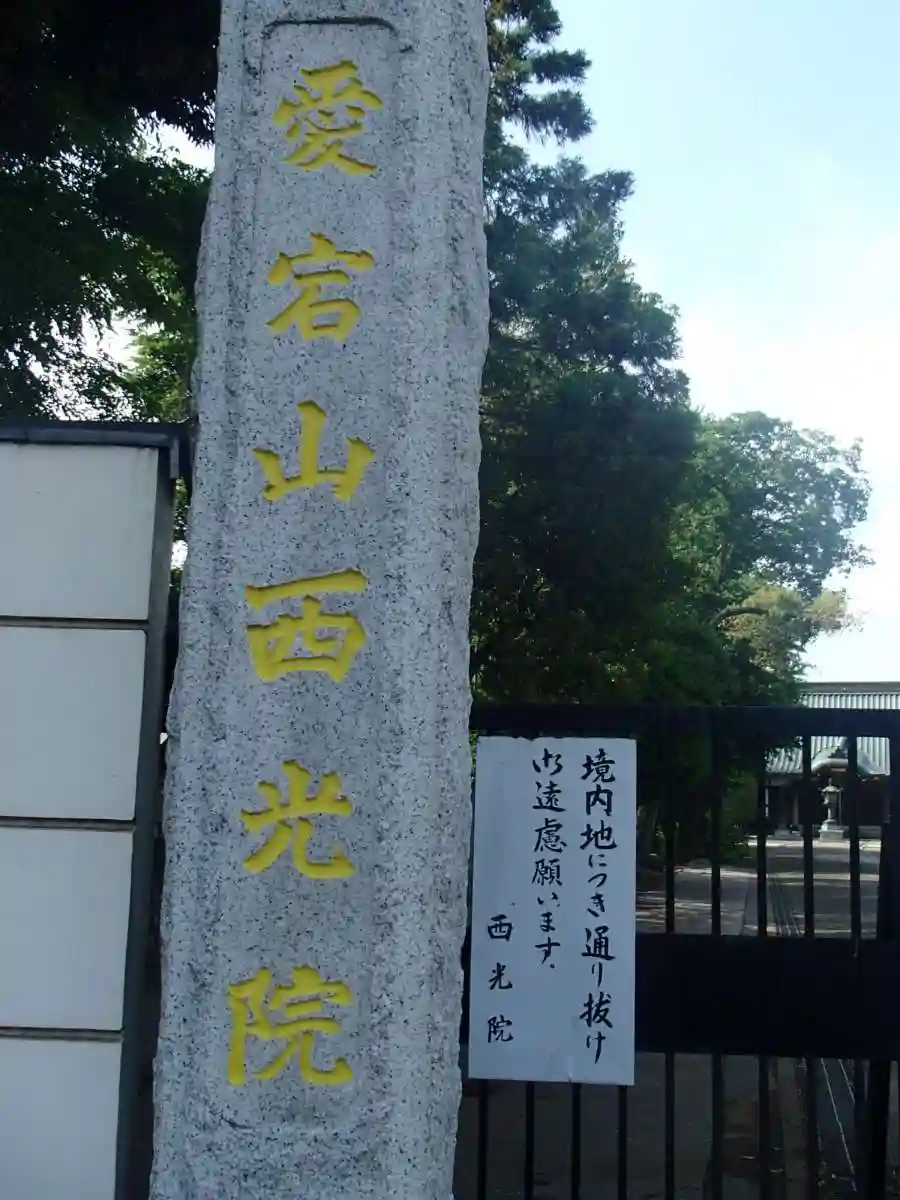 愛宕山西光院
境内地につき通り抜け
御遠慮願います.
西光院